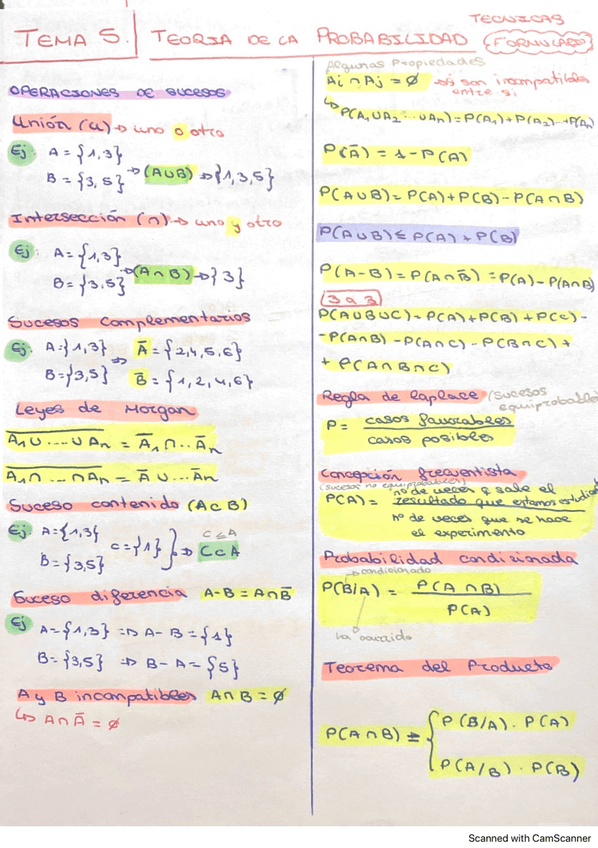 TECNICAS
TEMA 5. TEORIA DE LA PROBABILIDAD (FORMULARIO)
OPERACIONES DE SUCESOS
Unión (u) → uno o otro
Ej: A = {1,3}
B = {3,5} → (A∪B) → {1,3,5}
Intersección (∩) → uno y otro
Ej: A = {1,3}
B = {3,5} → (A∩B) → {3}
Sucesos complementarios
Ej: A = {1,3} ⇒ Ā = {2,4,5,6}
B = {3,5} B̄ = {1,2,4,6}
Leyes de Morgan
A̅₁̅ ̅∪̅ ̅.̅.̅.̅ ̅∪̅ ̅A̅n̅ = Ā₁ ∩ .. Ān
A̅₁̅ ̅∩̅ ̅.̅.̅.̅ ̅∩̅ ̅A̅n̅ = Ā ∪ ... Ān
Suceso contenido (A⊂B)
Ej A = {1,3} C = {1} C ≤ A
B = {3,5} ⇒ C⊂A
Suceso diferencia A-B = A∩B̄
Ej A = {1,3} ⇒ A - B = {1}
B = {3,5} ⇒ B - A = {5}
A y B incompatibles A∩B = Ø
↳ A∩Ā = Ø
Algunas Propiedades
Ai ∩ Aj = Ø → si son incompatibles
entre si
↳ P(A₁∪A₂ ... ∪An) = P(A₁) + P(A₂) ... + P(An)
P(Ā) = 1 - P(A)
P(A∪B) = P(A) + P(B) - P(A∩B)
P(A∪B) ≤ P(A) + P(B)
P(A-B) = P(A∩B̄) = P(A) - P(A∩B)
3 a 3
P(A∪B∪C) = P(A) + P(B) + P(C) -
- P(A∩B) - P(A∩C) - P(B∩C) +
+ P(A∩B∩C)
Regla de Laplace (sucesos
equiprobables)
P = casos favorables
casos posibles
Concepción frecuentista
(sucesos no equiprobables)
P(A) = nº de veces q sale el
resultado que estamos estudiando
Nº de veces que se hace
el experimento
Probabilidad condicionada
→ condicionado
P(B/A) = P(A∩B)
P(A)
ya ocurrido
Teorema del Producto
P(A∩B) = { P(B/A) · P(A)
P(A/B) · P(B)
Scanned with CamScanner